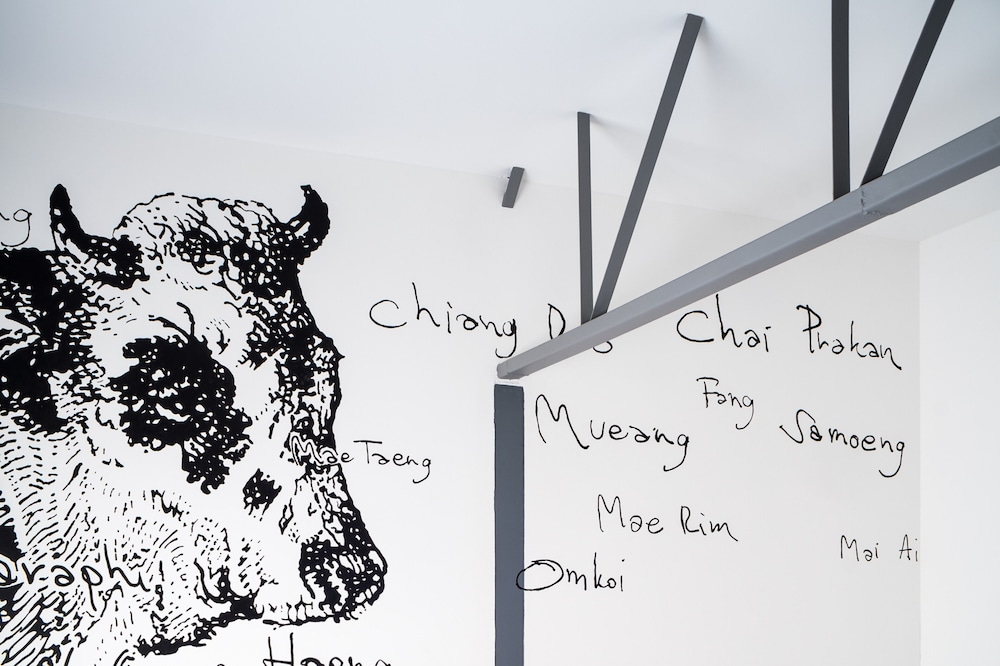 Chiang D
Chai Prakan
Fang
Mueang
Samoeng
Mae Taeng
Mae Rim
Mai Ai
Omkoi
araphi